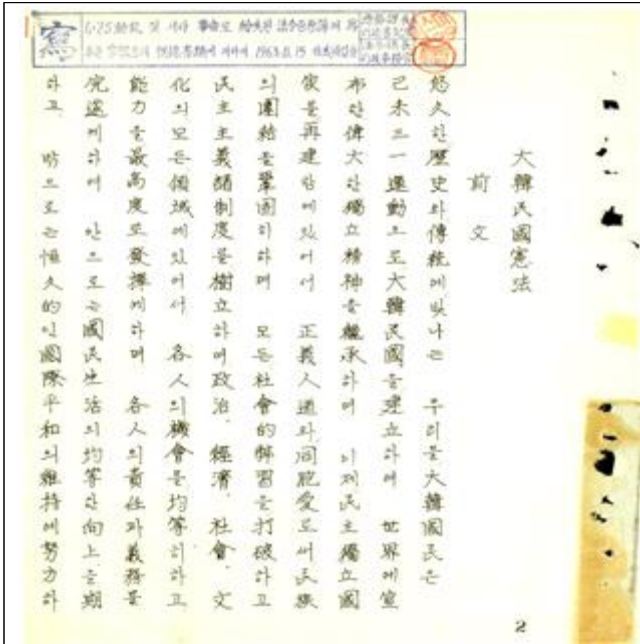 憲
大韓民國憲法
前文
悠久한歷史와傳統에빛나는 우리들大韓國民은
己未三一運動으로大韓民國을建立하여 世界에宣
布한偉大한獨立精神을繼承하여 이제民主獨立國
家를再建함에있어서 正義人道와同胞愛로써民族
의團結을鞏固히하며 모든社會的弊習을打破하고
民主主義諸制度를樹立하여政治, 經濟, 社會, 文
化의모든領域에있어서 各人의機會를均等히하고
能力을最高度로發揮케하며 各人의責任과義務를
完遂케하여 안으로는國民生活의均等한向上을期
하고 밖으로는恒久的인國際平和의維持에努力하
2